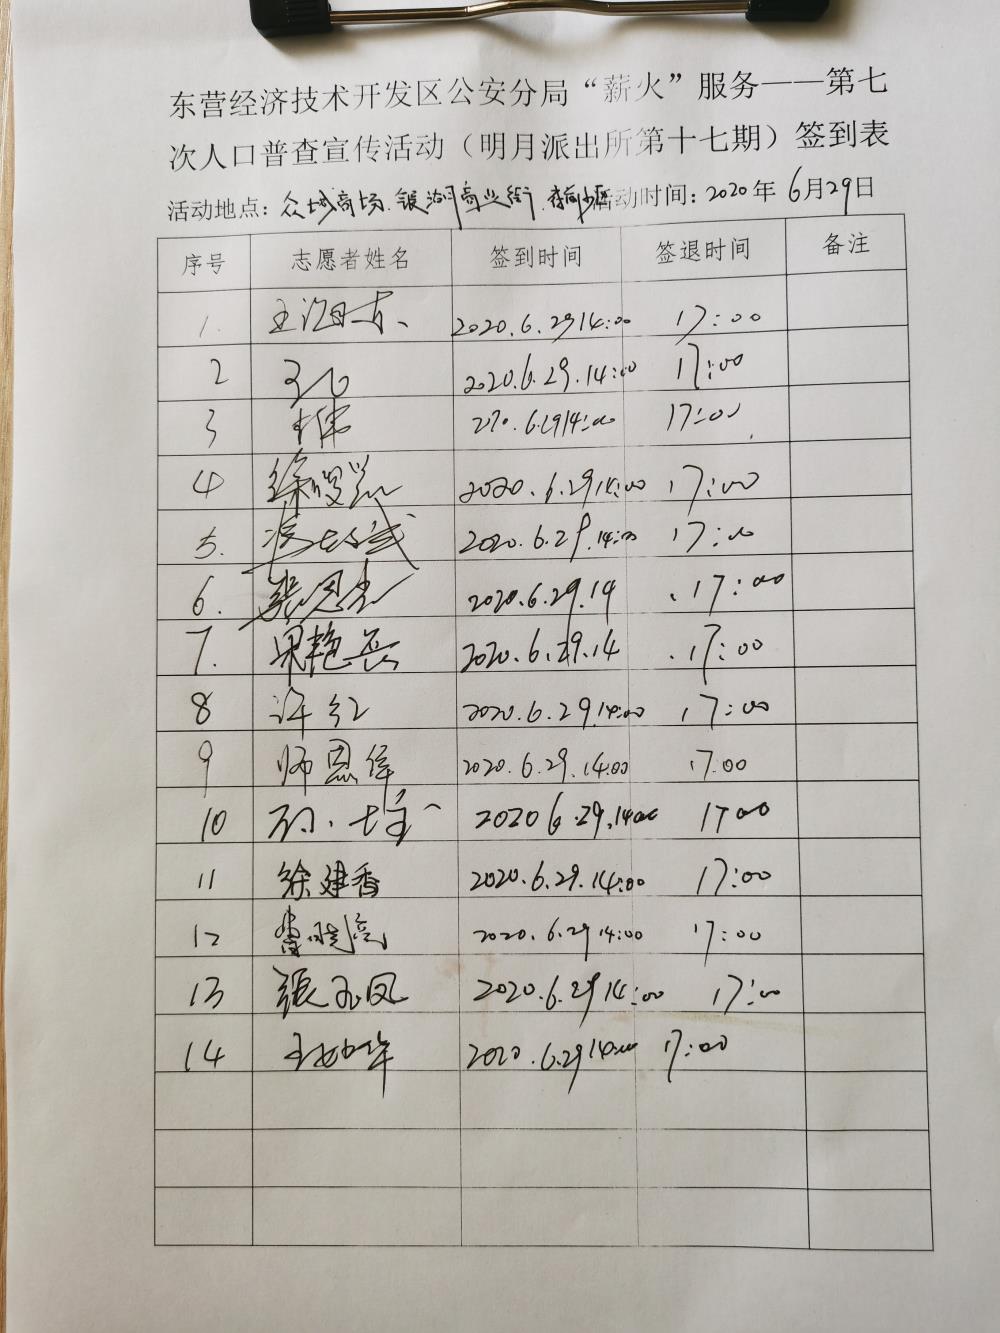 东营经济技术开发区公安分局“薪火”服务——第七
次人口普查宣传活动（明月派出所第十七期）签到表
活动地点：众城商场.银湖商业街. 活动时间：2020年6月29日
序号 志愿者姓名 签到时间 签退时间 备注
1. 王海东 2020.6.29 14:00 17:00
2 2020.6.29.14:00 17:00
3 王伟 17:00
4 徐 2020.6.29 14:00 17:00
5. 2020.6.29.14:00 17:00
6. 张恩 2020.6.29.14 17:00
7. 艳 2020.6.29.14 17:00
8 许红 2020.6.29.14:00 17:00
9 师恩 2020.6.29.14:00 17:00
10 2020 6.29.14 00 17 00
11 徐建香 2020.6.29.14:00 17:00
12 2020.6.29 14:00 17:00
13 張玉凤 2020.6.29 14:00 17:00
14 王 2020.6.29 14:00 17:00